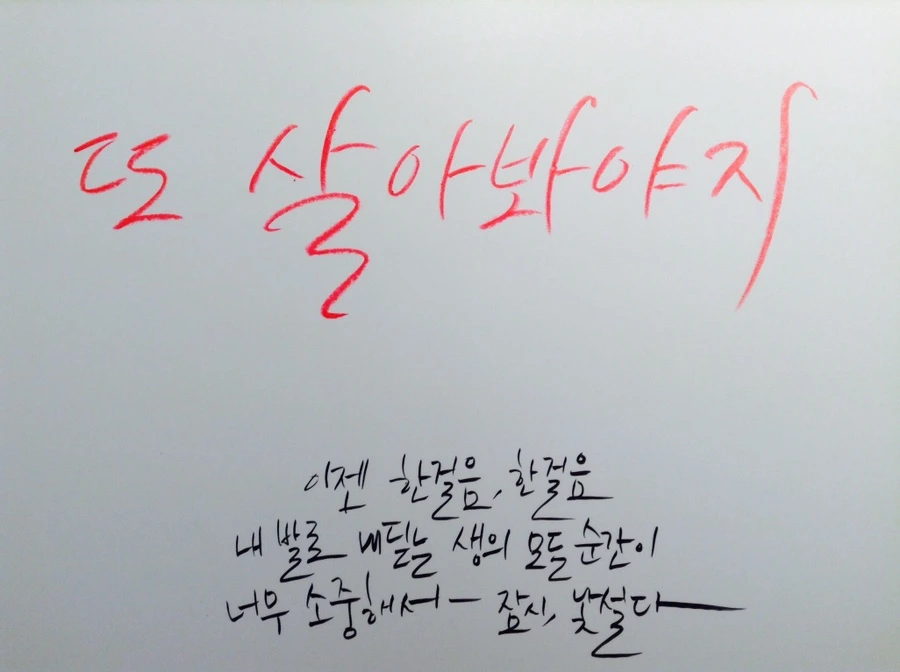 또 살아봐야지
이젠 한걸음, 한걸음
내 발로 내딛는 생의 모든 순간이
너무 소중해서 — 잠시, 낯설다